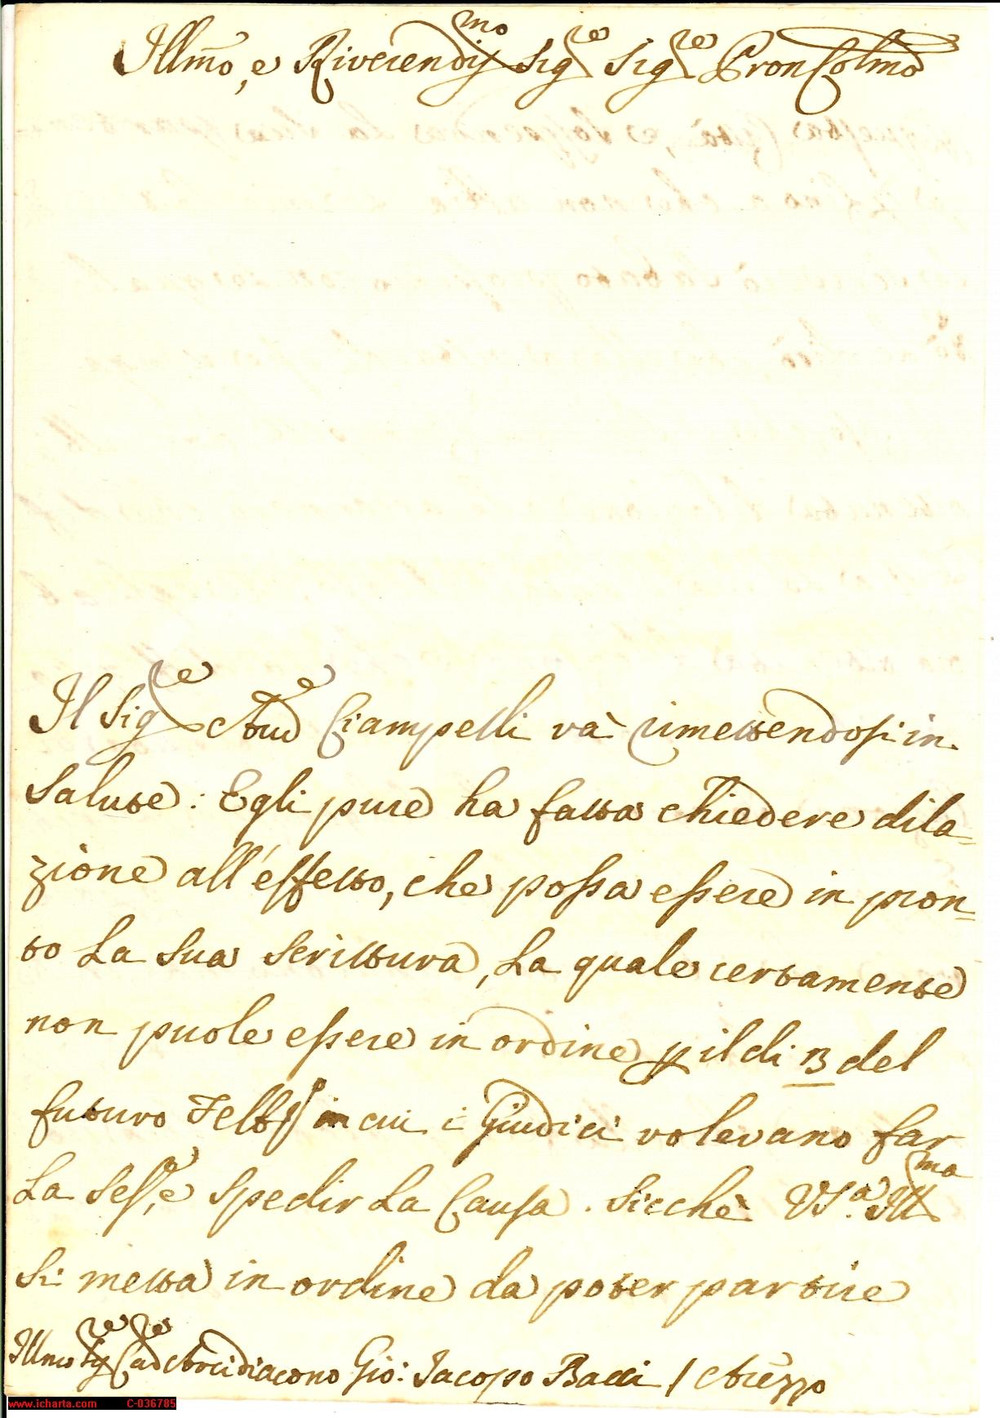 Illmo, e Riverendismo Sigre Sigre Pron Colmo
Il Sigre Aude Ciampelli và rimettendosi in
Salute: Egli pure ha fatta chiedere dila=
zione all'effetto, che possa essere in pron=
to la sua scrittura, la quale certamente
non puole essere in ordine p il di 13 del
futuro Febb in cui i Giudici volevano far
la Sesse, e Spedir la Causa. Sicchè VSa Illma
si metta in ordine da poter partire
Illmo Sigre Cadre Arcidiacono Gio: Jacopo Bacci / Arezzo
www.icharta.com C-036785